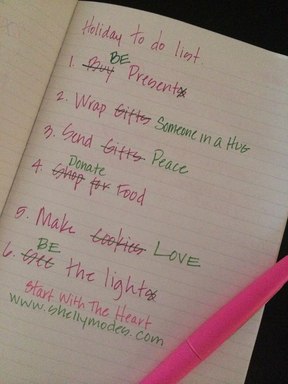 Holiday to do list
BE
1. Buy Presents
2. Wrap Gifts Someone in a Hug
3. Send Gifts Peace
Donate
4. Shop for Food
5. Make Cookies LOVE
BE
6. Get the lights
Start With The Heart
www.shellymodes.com